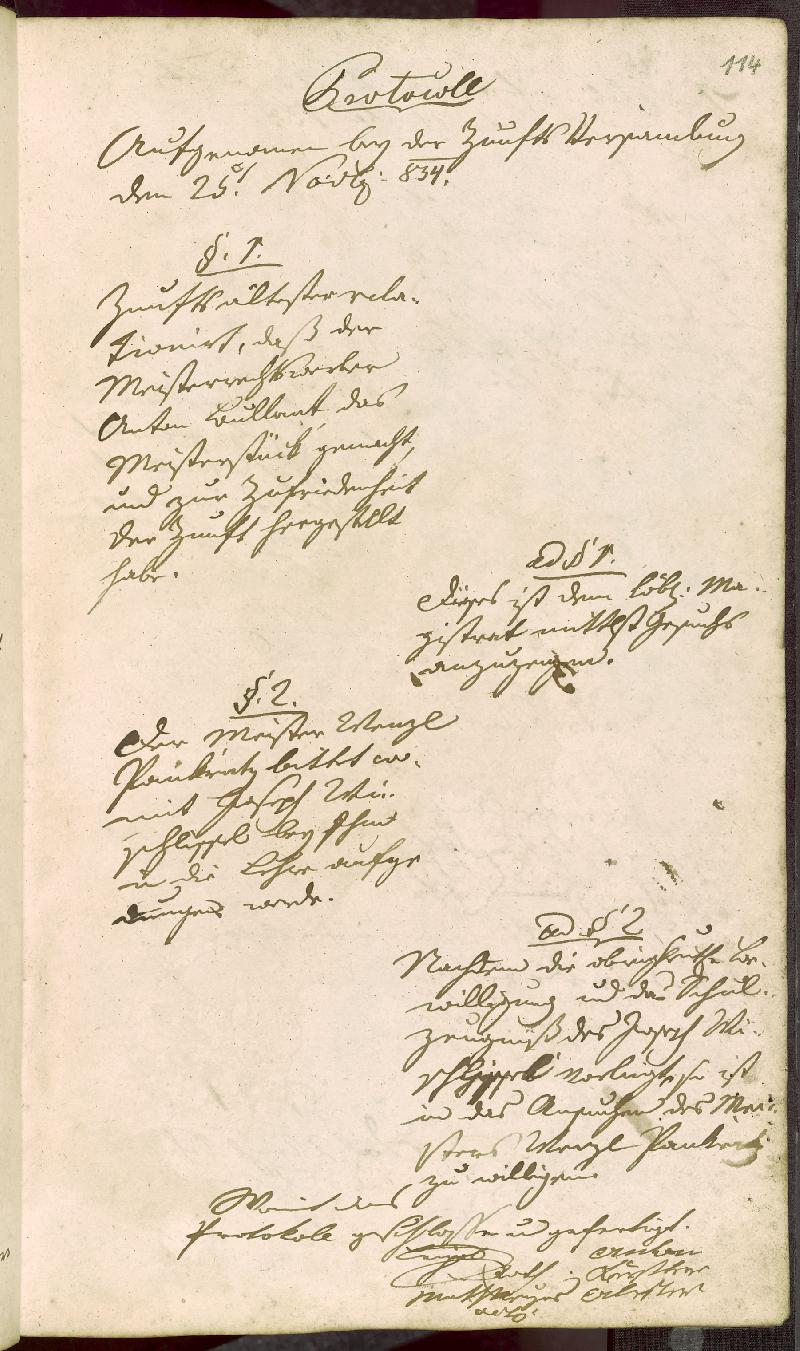 114
Protocoll
Aufgenomen bey der Zunfts Versamlung
den 25t. Novbr: 834.
§. 1.
Zunftsältester rela-
tionirt, daß der
Meisterrechtswerber
Anton das
Meisterstück gemacht,
und zur Zufriedenheit
der Zunft hergestellt
habe.
ad § 1.
Dieses ist dem löbl: Ma-
gistrat mittelst Gesuchs
anzuzeigen.
§. 2.
Der Meister Wenzl
Pankratz bittet wo-
mit Joseph Wi-
schlippel bey Ihm
in die Lehre aufge
dungen werde.
ad § 2
Nachdem die obrigkeitle Be-
willigung und das Schul-
zeugniß des Joseph Wi-
schlippel vorliegt, so ist
in das Ansuchen des Mei-
sters Wenzl Pankratz
zu willigen.
Womit das
Protokoll geschlossen u gefertigt.